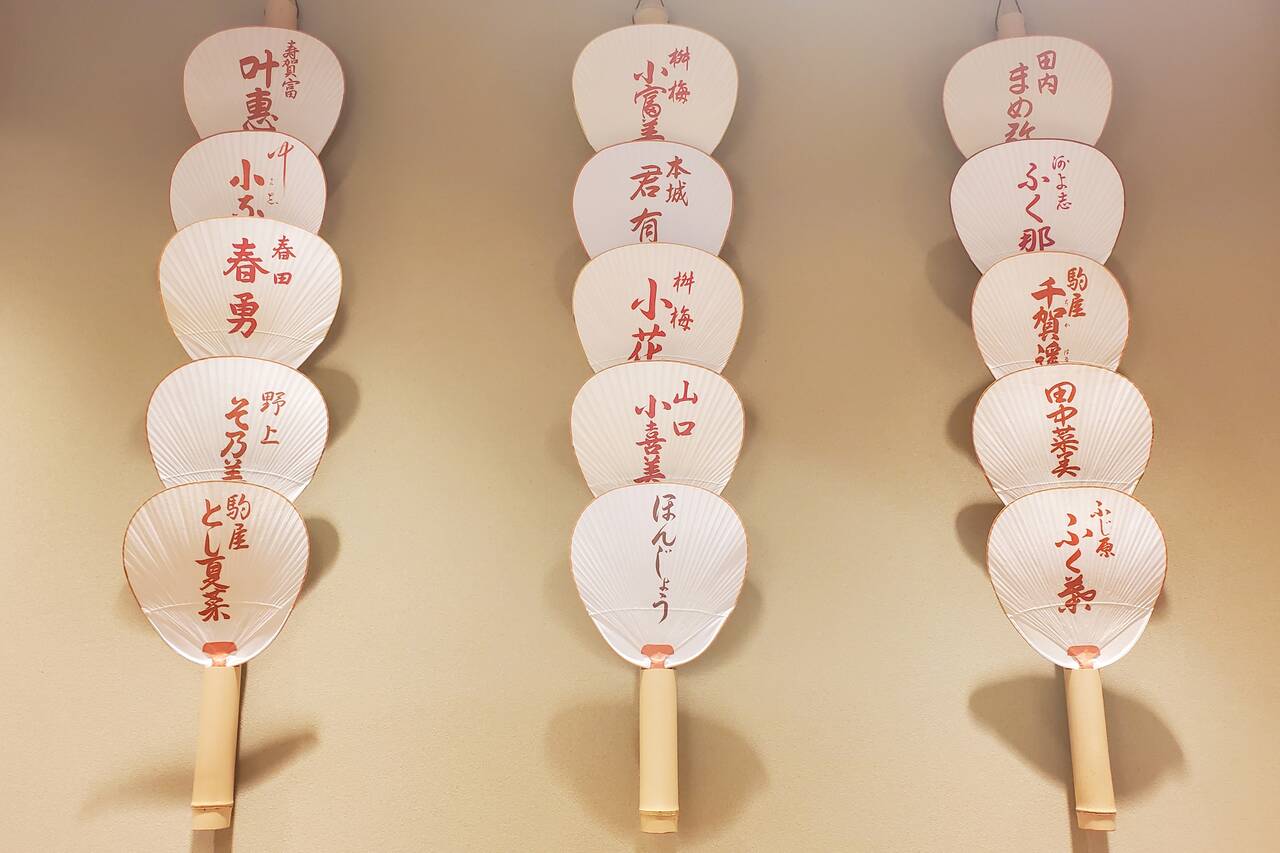 寿賀富
叶惠
叶
小
春田
春勇
野上
そ乃美
駒屋
とし夏菜
桝梅
小富美
本城
君有
桝梅
小花
山口
小喜美
ほんじょう
田内
まめ弥
河よ志
ふく那
駒屋
千賀遥
ちか
はる
田中菜美
ふじ原
ふく葉